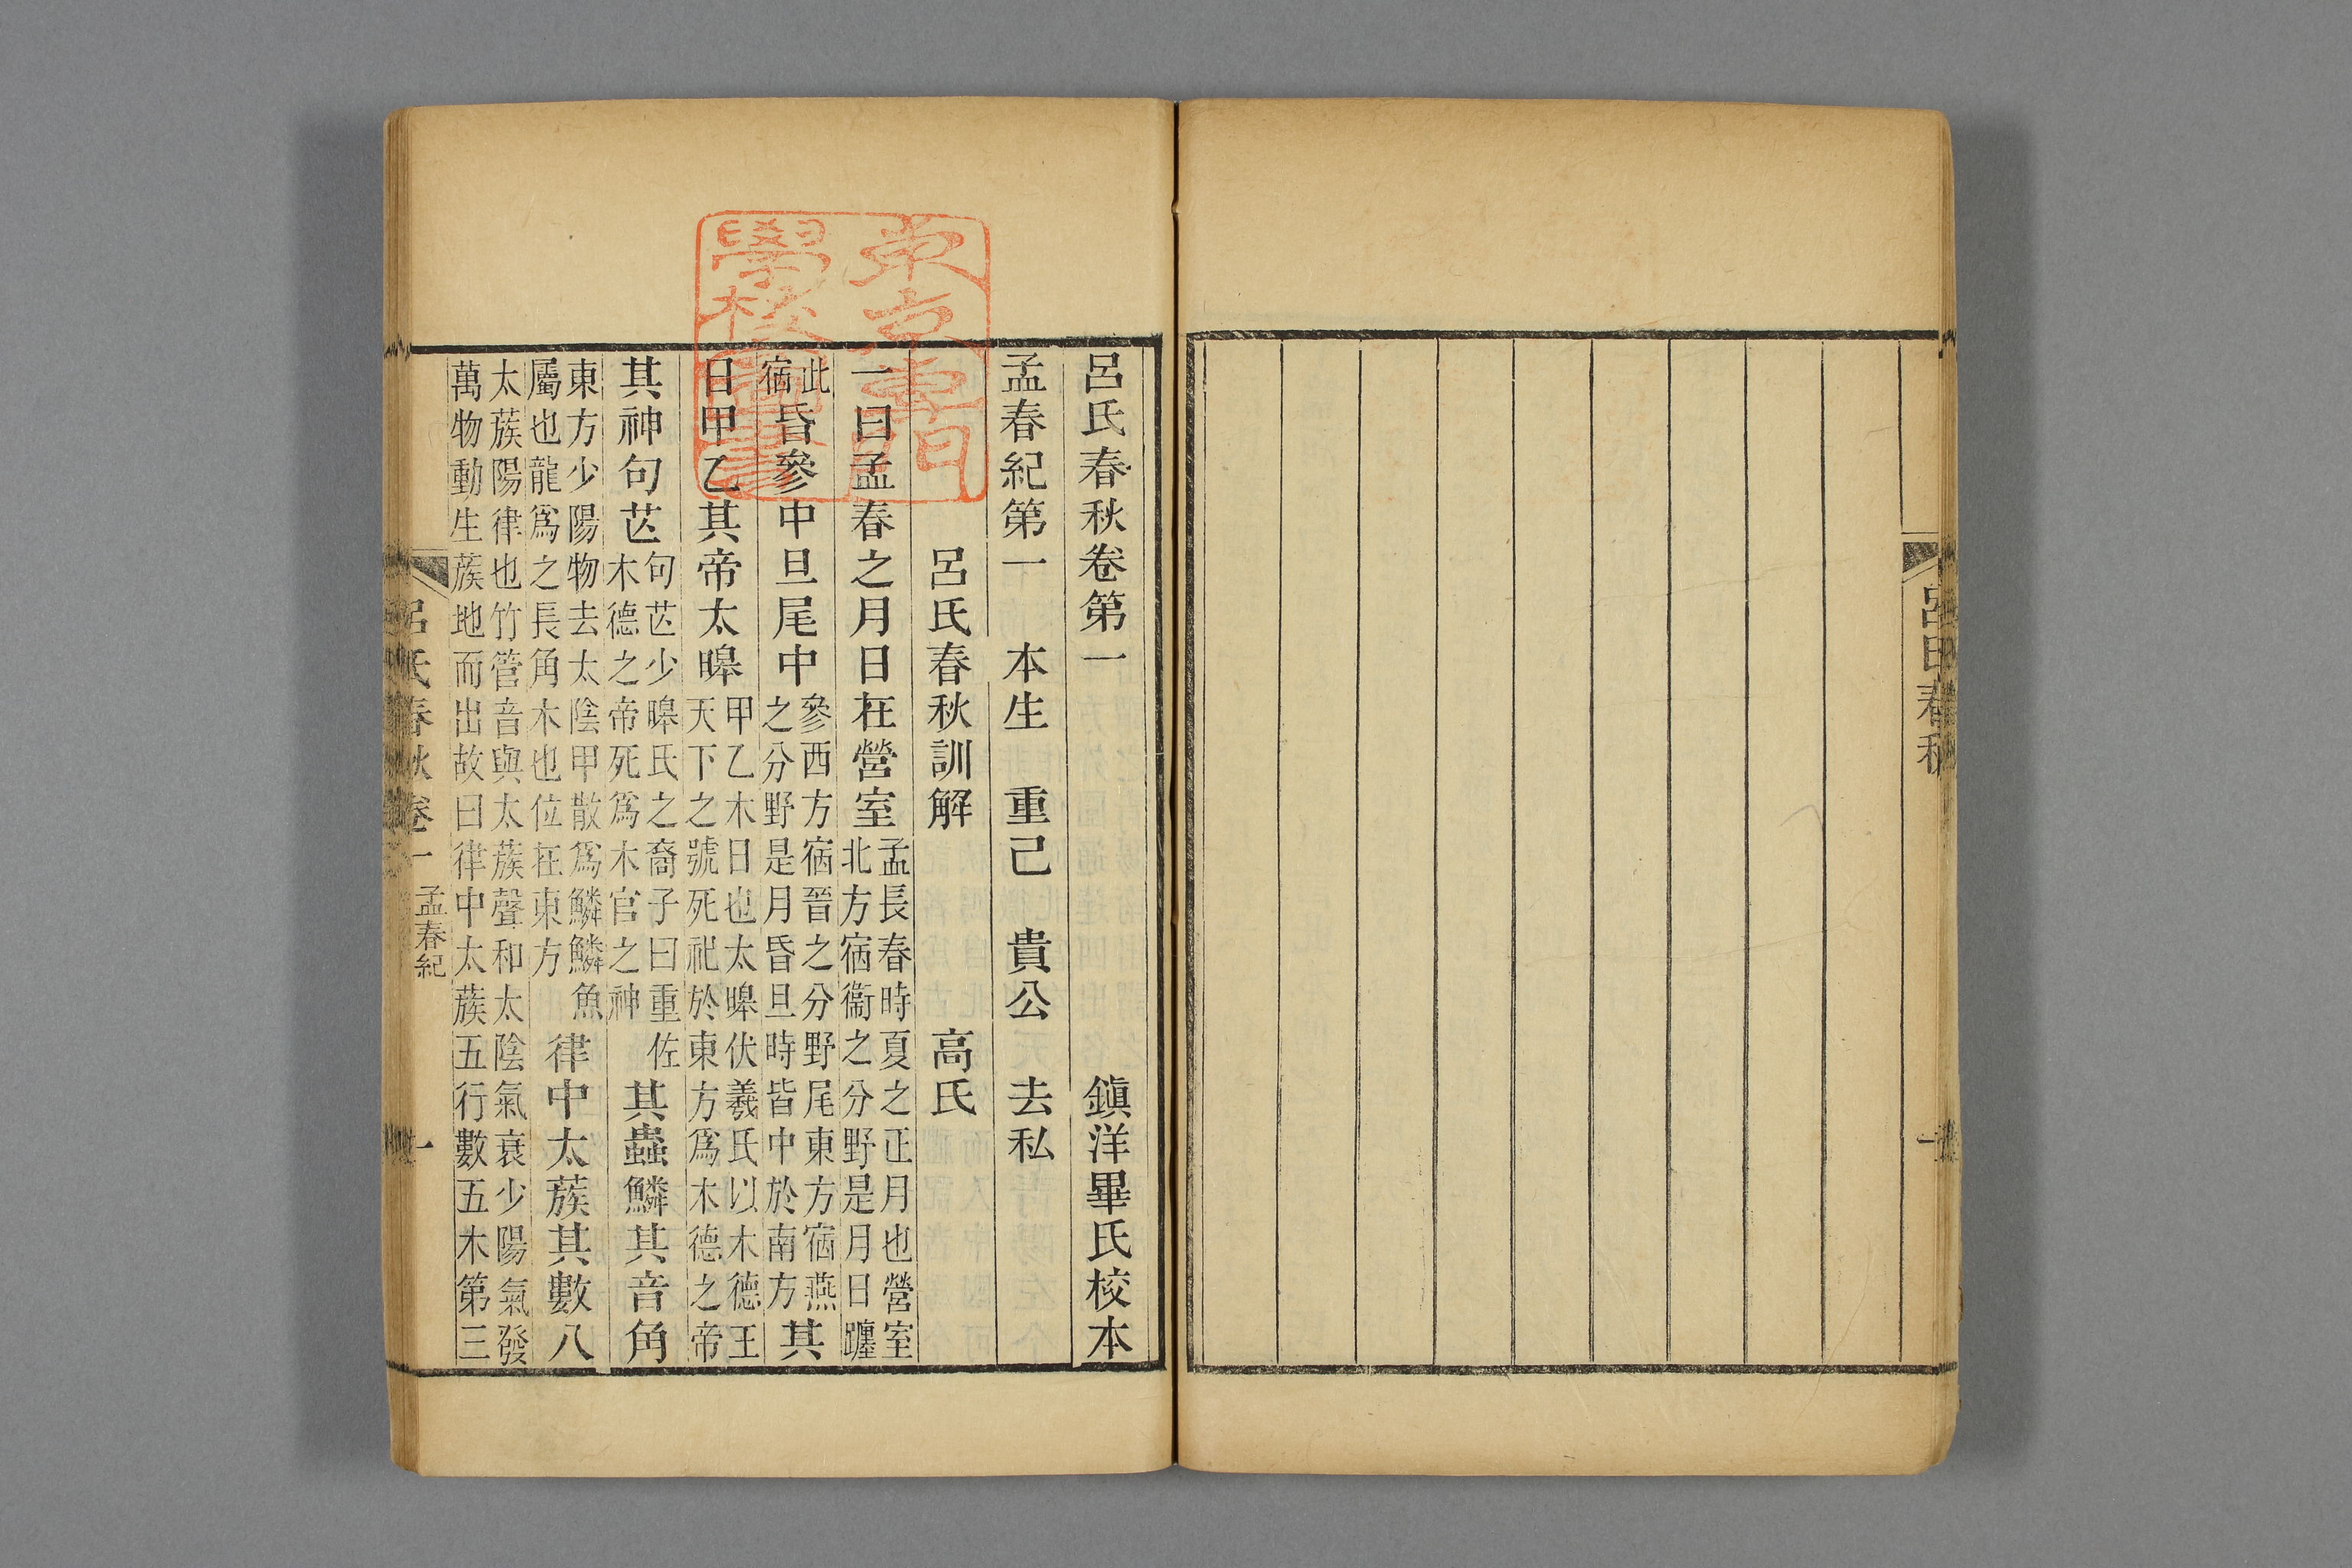 呂氏春秋
一
呂氏春秋卷第一　鎮洋畢氏校本
孟春紀第一　本生　重己　貴公　去私
呂氏春秋訓解　高氏
一曰孟春之月日在營室孟長春時夏之正月也營室北方宿衞之分野是月日躔
此宿昏參中旦尾中參西方宿晉之分野尾東方宿燕之分野是月昏旦時皆中於南方其
日甲乙其帝太皞甲乙木日也太皞伏羲氏以木德王天下之號死祀於東方爲木德之帝
其神句芒句芒少皞氏之裔子曰重佐木德之帝死爲木官之神其蟲鱗其音角
東方少陽物去太陰甲散爲鱗鱗魚屬也龍爲之長角木也位在東方律中太蔟其數八
太蔟陽律也竹管音與太蔟聲和太陰氣衰少陽氣發萬物動生蔟地而出故曰律中太蔟五行數五木第三
呂氏春秋　卷一　孟春紀　一
東京專門
學校圖書